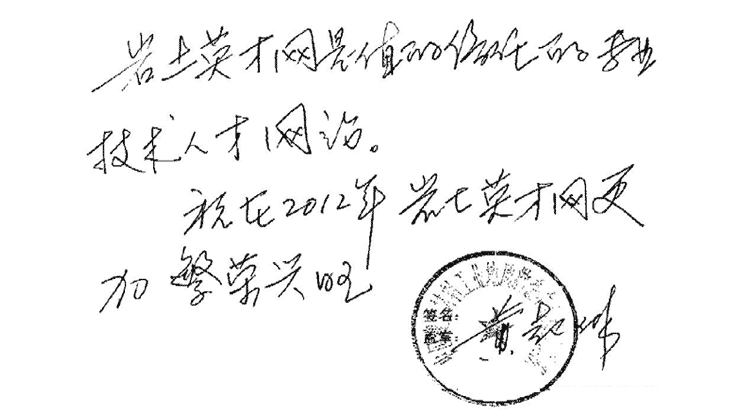 岩土英才网是值的信任的专业
技术人才网站。
祝在2012年岩土英才网更
加繁荣兴旺
签名:
盖章: